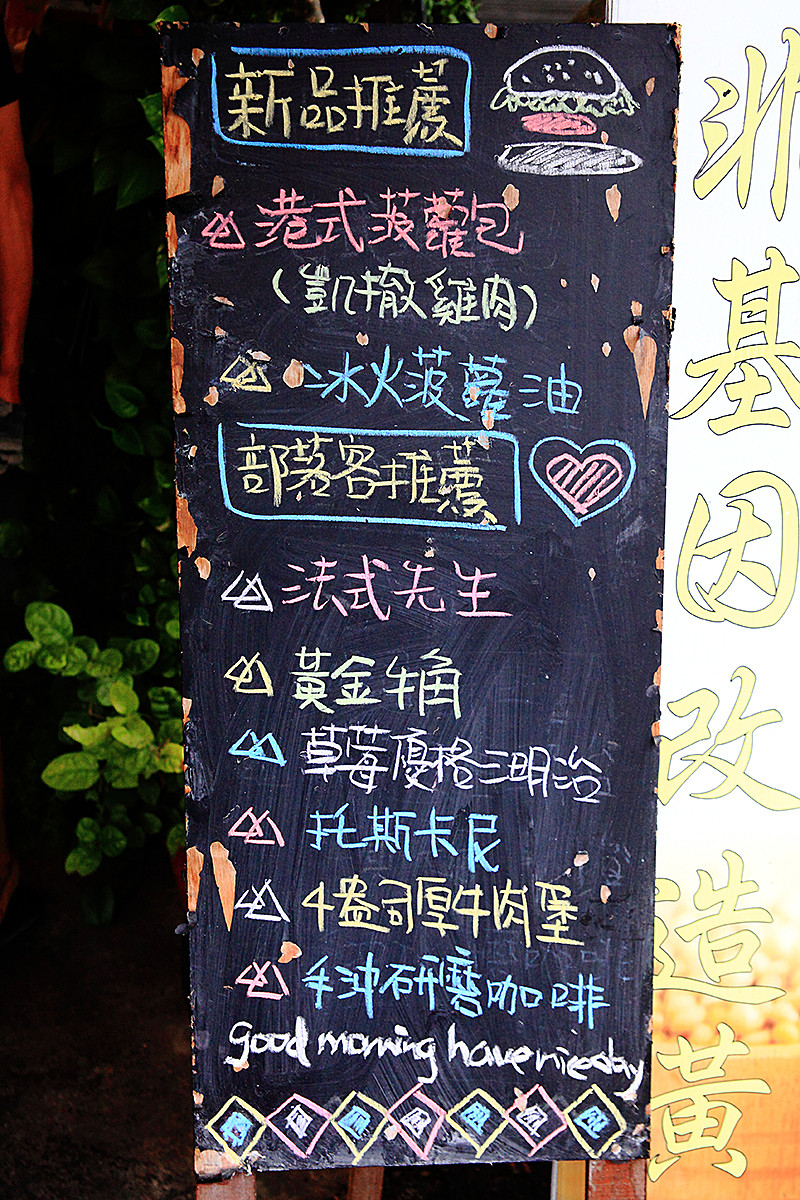 新品推薦
港式菠蘿包
(凱撒雞肉)
冰火菠蘿油
部落客推薦
法式先生
黃金牛角
草莓優格三明治
托斯卡尼
4盎司厚牛肉堡
手沖研磨咖啡
good morning have nice day
非基因改造黃